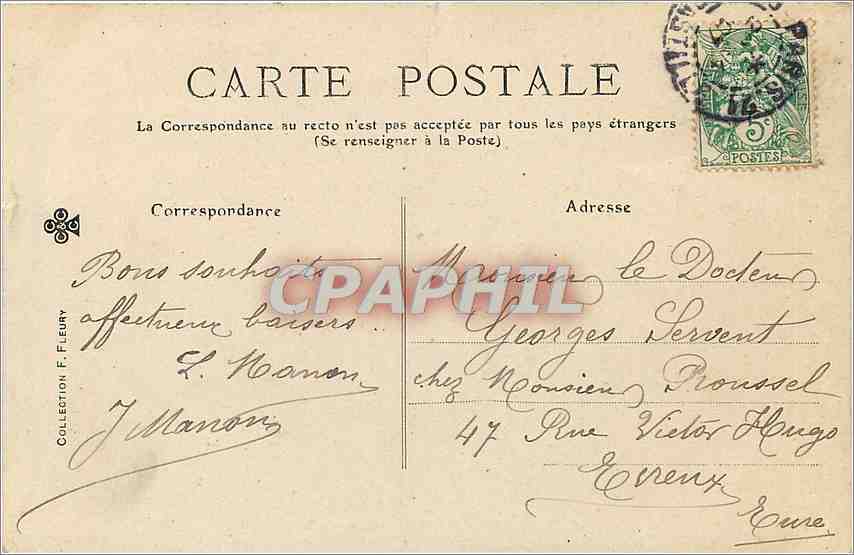 CARTE POSTALE
La Correspondance au recto n'est pas acceptée par tous les pays étrangers
(Se renseigner à la Poste)
PARIS
5c
POSTES
Correspondance
Bons souhaits
affectueux baisers..
L. Manon
J Manon
COLLECTION F. FLEURY
Adresse
Monsieur le Docteur
Georges Servent
chez Monsieur Roussel
47 Rue Victor Hugo
Evreux
Eure
CPAPHIL